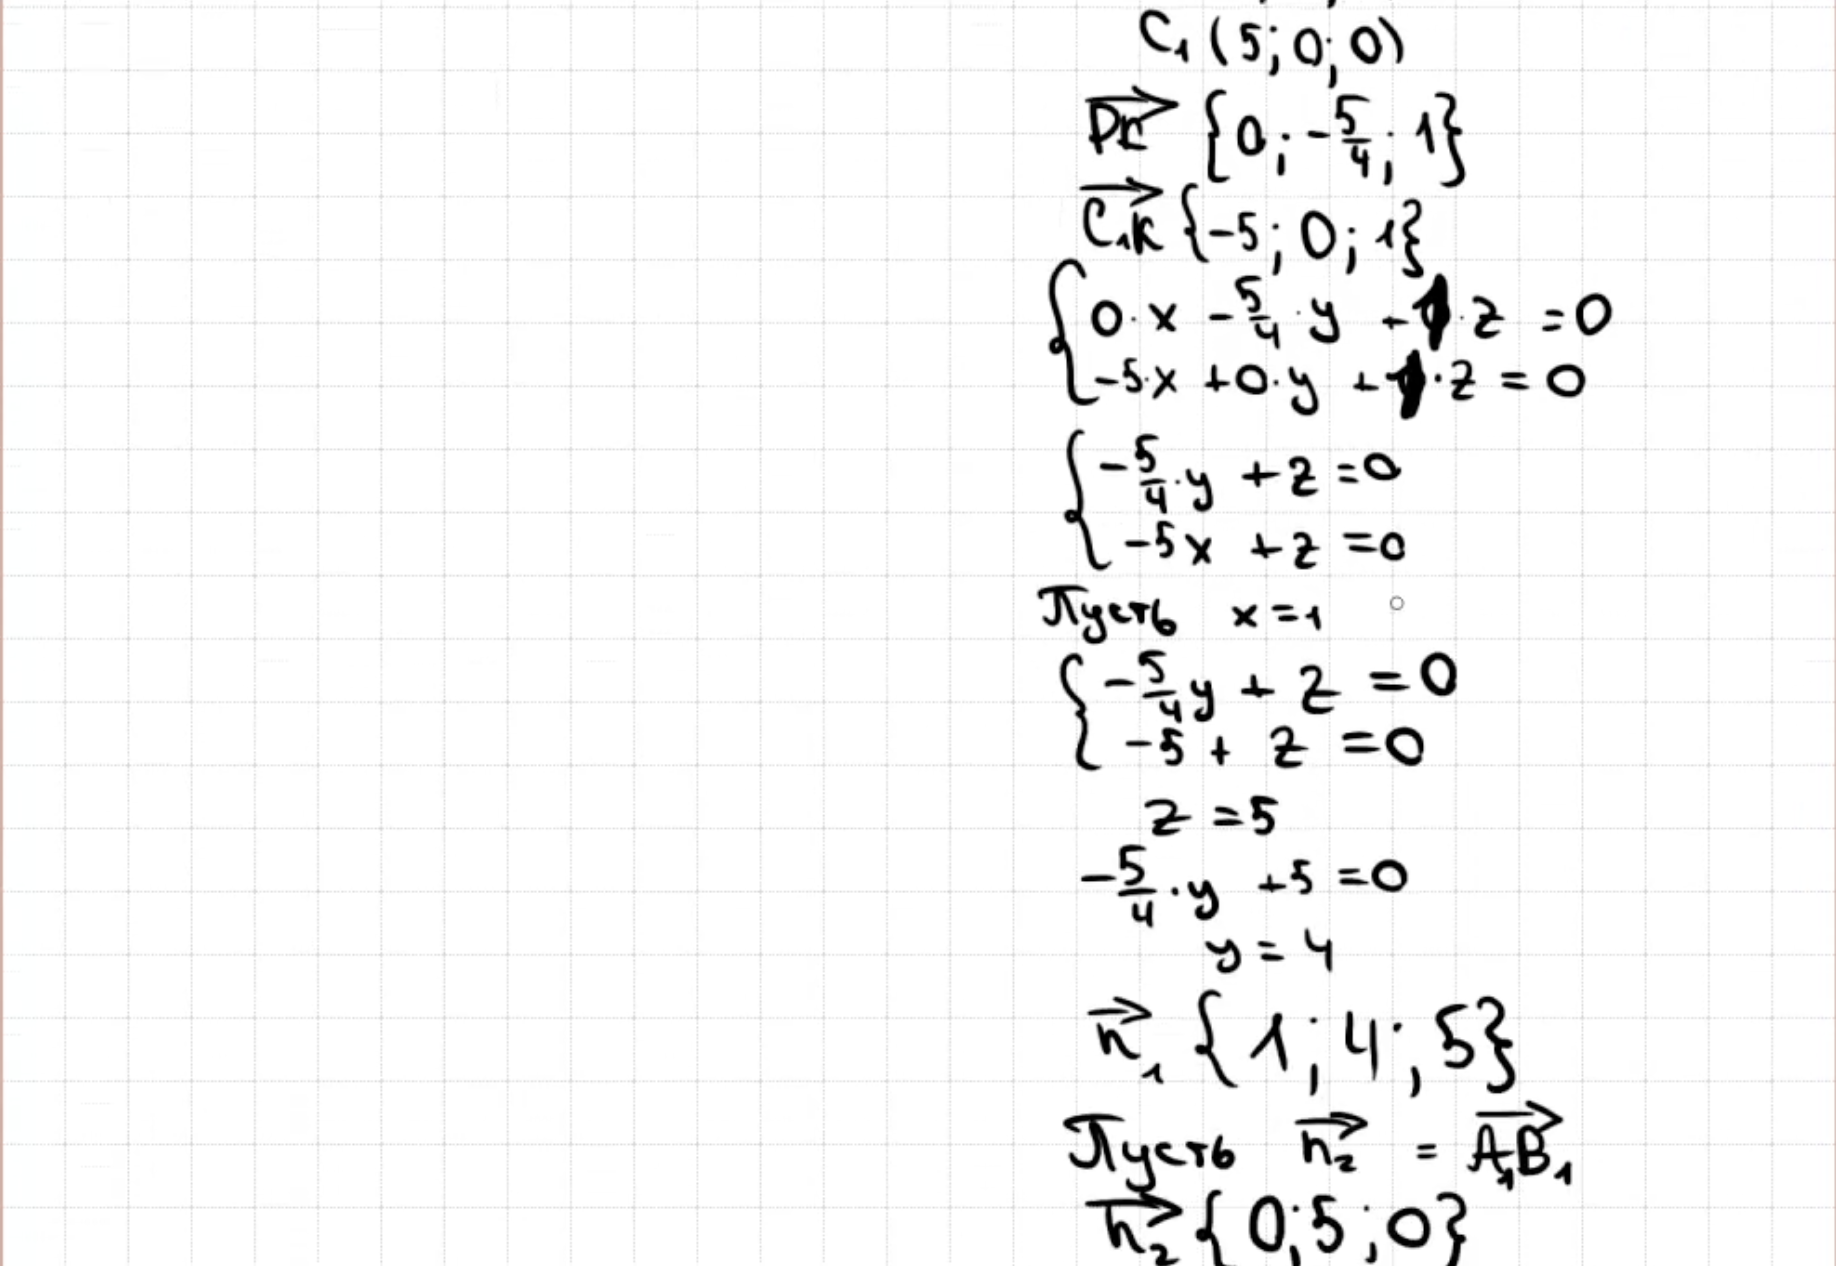 C₁ (5; 0; 0)
PK {0; -5/4; 1}
C₁K {-5; 0; 1}
0·x -5/4·y +1·z =0
-5·x +0·y +1·z =0
-5/4·y +z =0
-5x +z =0
Пусть x =1
-5/4y + z =0
-5 + z =0
z =5
-5/4·y +5 =0
y = 4
n₁ {1; 4; 5}
Пусть n₂ = A₁B₁
n₂ {0; 5; 0}